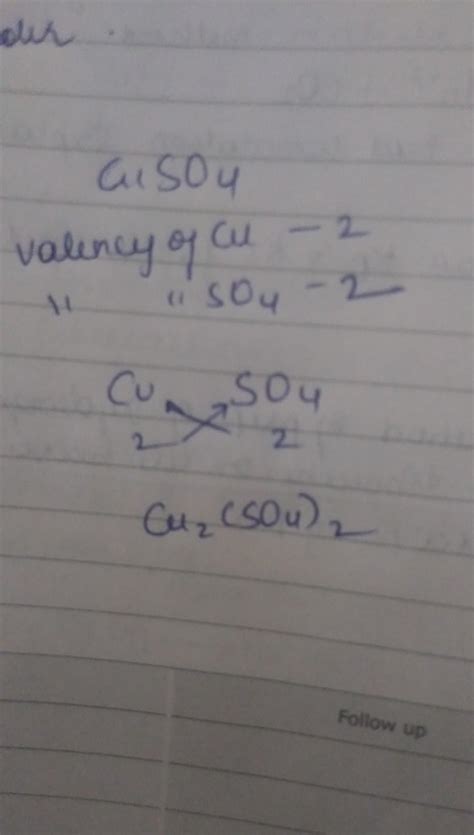 CuSO4
valency of Cu - 2
" " SO4 - 2
Cu SO4
2 2
Cu2(SO4)2
Follow up